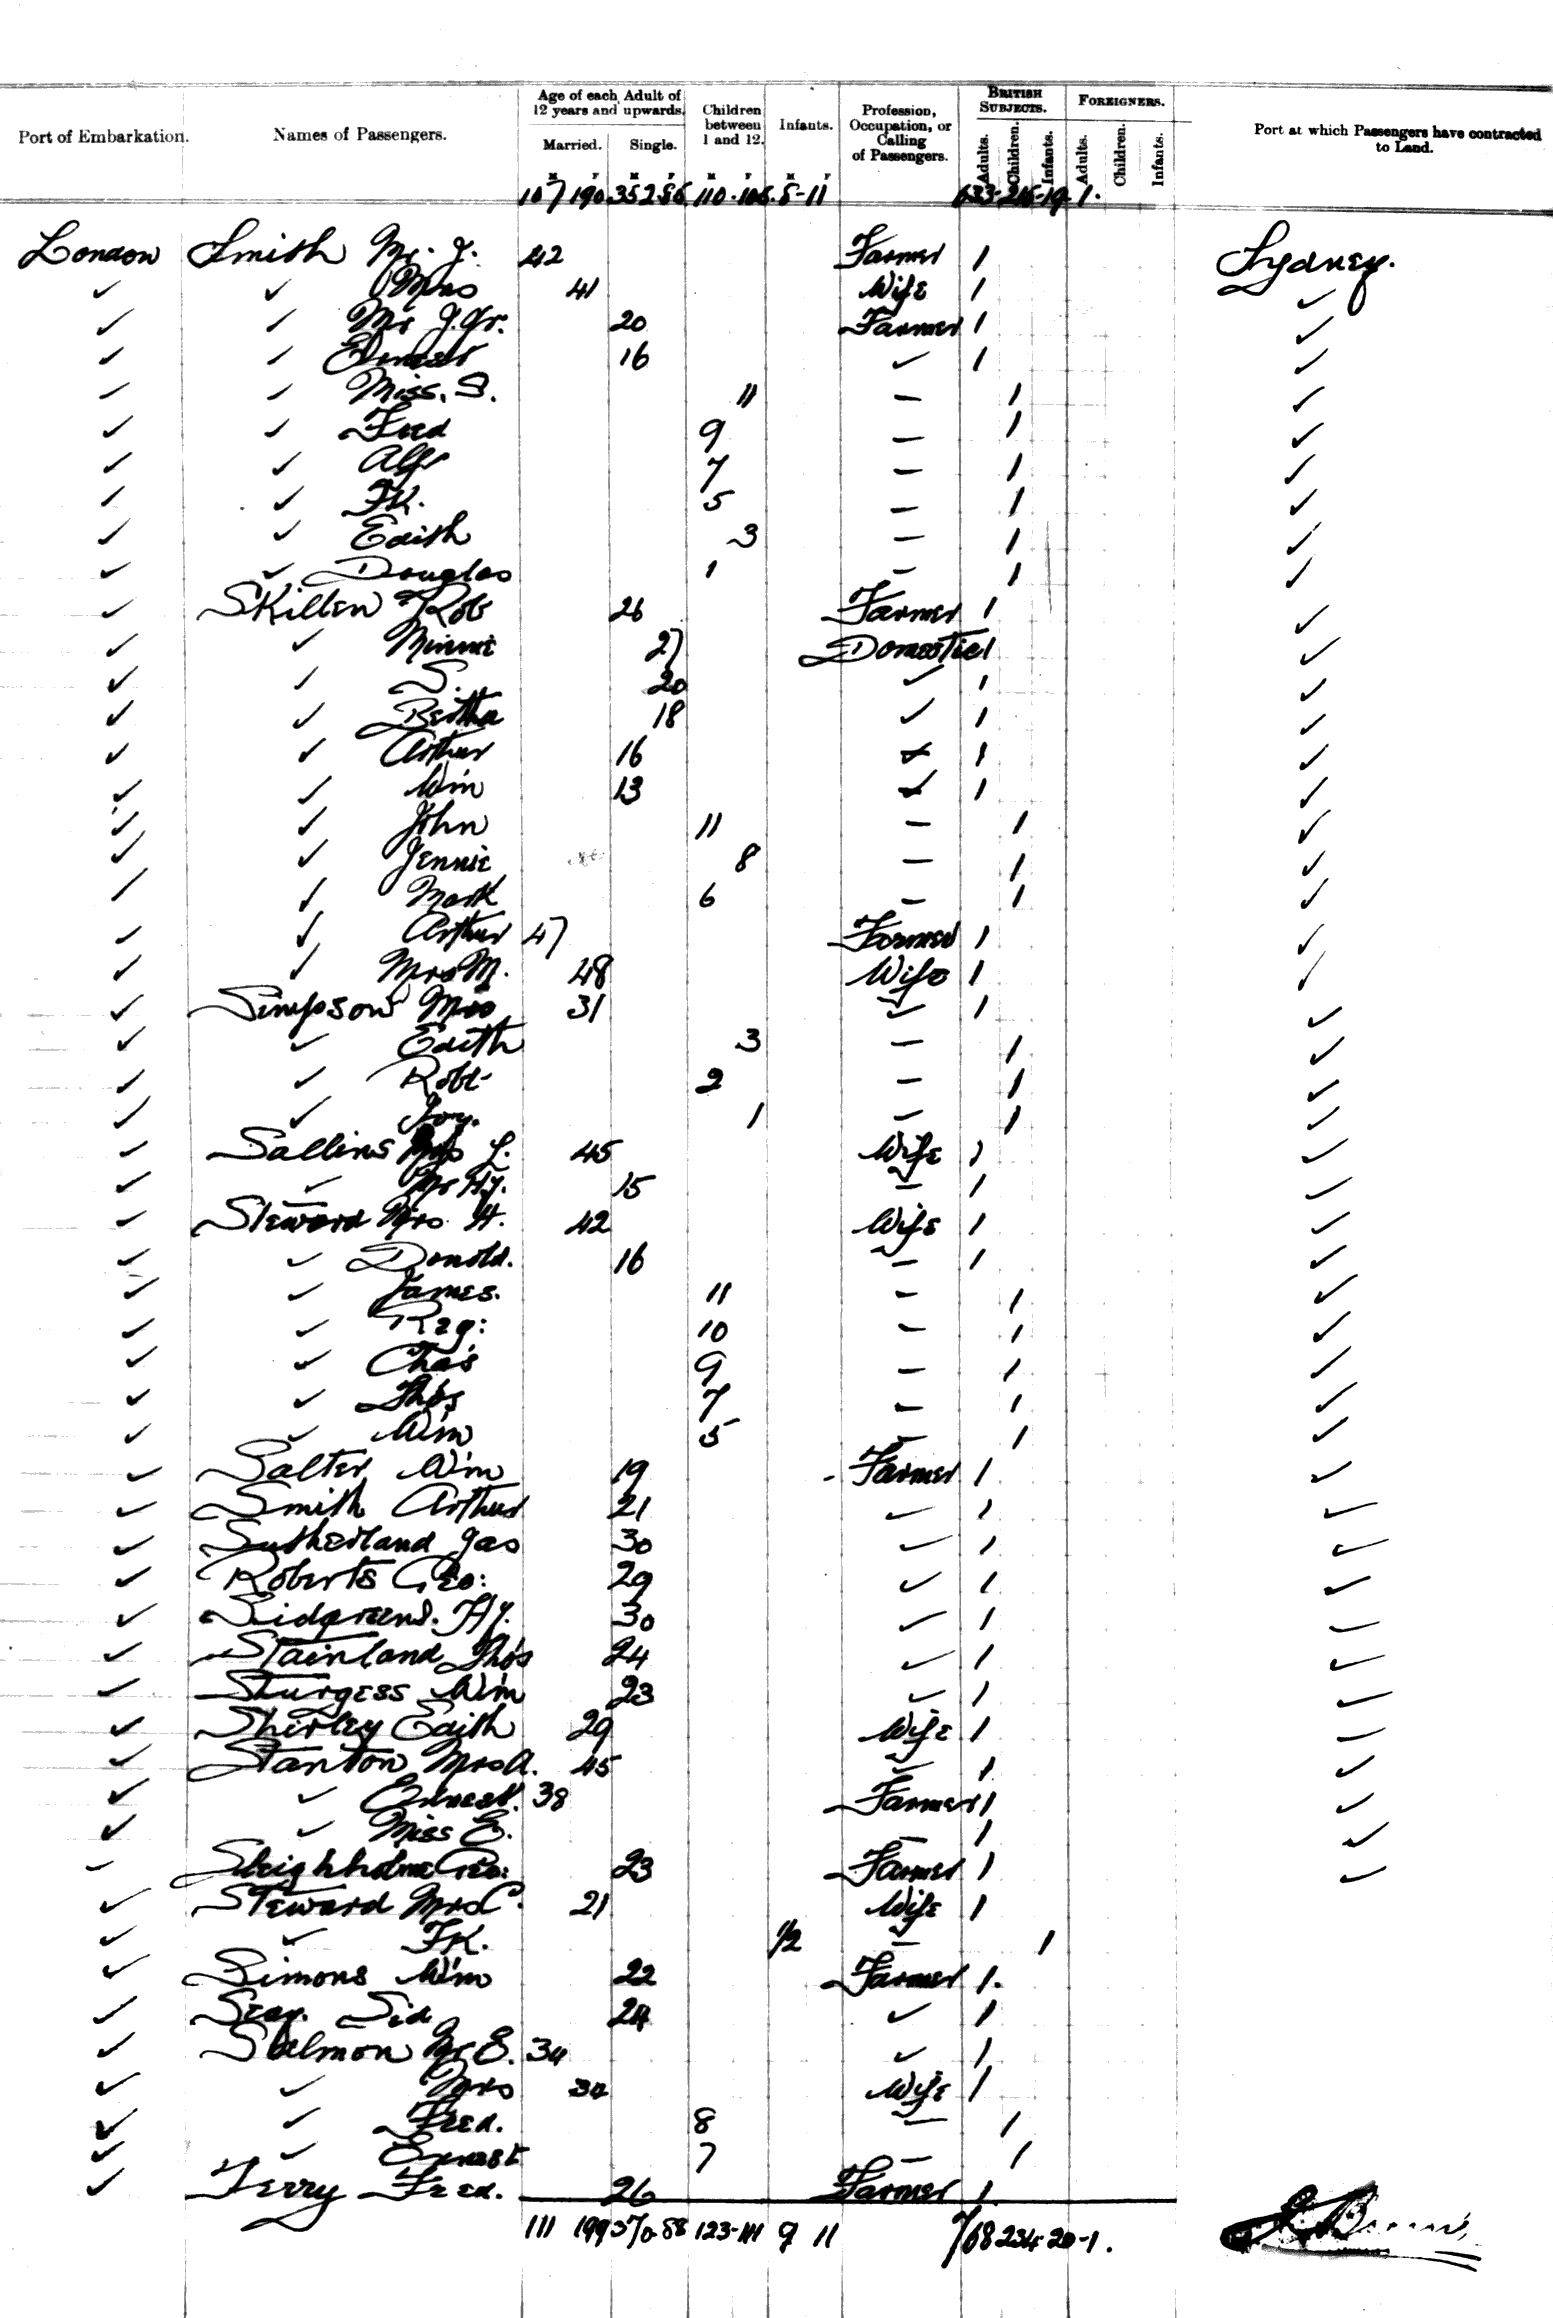 Port of Embarkation. Names of Passengers. Age of each Adult of 12 years and upwards. Married. Single. Children between 1 and 12. Infants. Profession, Occupation, or Calling of Passengers. BRITISH SUBJECTS. Adults. Children. Infants. FOREIGNERS. Adults. Children. Infants. Port at which Passengers have contracted to Land.
M F M F M F M F
107 190 352 86 110 - 106 . 8 - 11 633 - 216 - 19 1 .
London Smith Mr. J. 42 Farmer 1 Sydney.
✓ ✓ Mrs 41 Wife 1 ✓
✓ ✓ Mr J. Jr. 20 Farmer 1 ✓
✓ ✓ Ernest 16 ✓ 1 ✓
✓ ✓ Miss. S. 11 - 1 ✓
✓ ✓ Fred 9 - 1 ✓
✓ ✓ Alfr 7 - 1 ✓
✓ ✓ Fk. 5 - 1 ✓
✓ ✓ Edith 3 - 1 ✓
✓ ✓ Douglas 1 - 1 ✓
✓ Skillen Rob 26 Farmer 1 ✓
✓ ✓ Minnie 27 Domestic 1 ✓
✓ ✓ S. 20 ✓ 1 ✓
✓ ✓ Bertha 18 ✓ 1 ✓
✓ ✓ Arthur 16 ✓ 1 ✓
✓ ✓ Wm 13 ✓ 1 ✓
✓ ✓ John 11 - 1 ✓
✓ ✓ Jennie 8 - 1 ✓
✓ ✓ Mark 6 - 1 ✓
✓ ✓ Arthur 47 Farmer 1 ✓
✓ ✓ Mrs M. 48 Wife 1 ✓
✓ Simpson Mrs 31 ✓ 1 ✓
✓ ✓ Edith 3 - 1 ✓
✓ ✓ Robt 2 - 1 ✓
✓ ✓ Joy. 1 - 1 ✓
✓ Sallins Mrs L. 45 Wife 1 ✓
✓ ✓ Mr Hy. 15 - 1 ✓
✓ Steward Mrs. H. 42 Wife 1 ✓
✓ ✓ Donald. 16 - 1 ✓
✓ ✓ James. 11 - 1 ✓
✓ ✓ Reg: 10 - 1 ✓
✓ ✓ Chas 9 - 1 ✓
✓ ✓ Thos 7 - 1 ✓
✓ ✓ Wm 5 - 1 ✓
✓ Salter Wm 19 Farmer 1 ✓
✓ Smith Arthur 21 ✓ 1 ✓
✓ Sutherland Jas 30 ✓ 1 ✓
✓ Roberts Geo: 29 ✓ 1 ✓
✓ Hy. 30 ✓ 1 ✓
✓ Stainland Thos 24 ✓ 1 ✓
✓ Sturgess Wm 23 ✓ 1 ✓
✓ Shirley Edith 29 Wife 1 ✓
✓ Stanton Mrs A. 45 ✓ 1 ✓
✓ ✓ Ernest. 38 Farmer 1 ✓
✓ ✓ Miss E. - 1 ✓
✓ Sleighholme Geo: 23 Farmer 1 ✓
✓ Steward Mrs C. 21 Wife 1
✓ ✓ Fk. 1/2 - 1
✓ Simons Wm 22 Farmer 1.
✓ Sid 24 ✓ 1
✓ Salmon Mr E. 34 ✓ 1
✓ ✓ Mrs 34 Wife 1
✓ ✓ Fred. 8 - 1
✓ ✓ Ernest 7 - 1
✓ Terry Fred. 26 Farmer 1
111 199 370 - 88 123 - 111 9 11 768 234 - 20 - 1 .